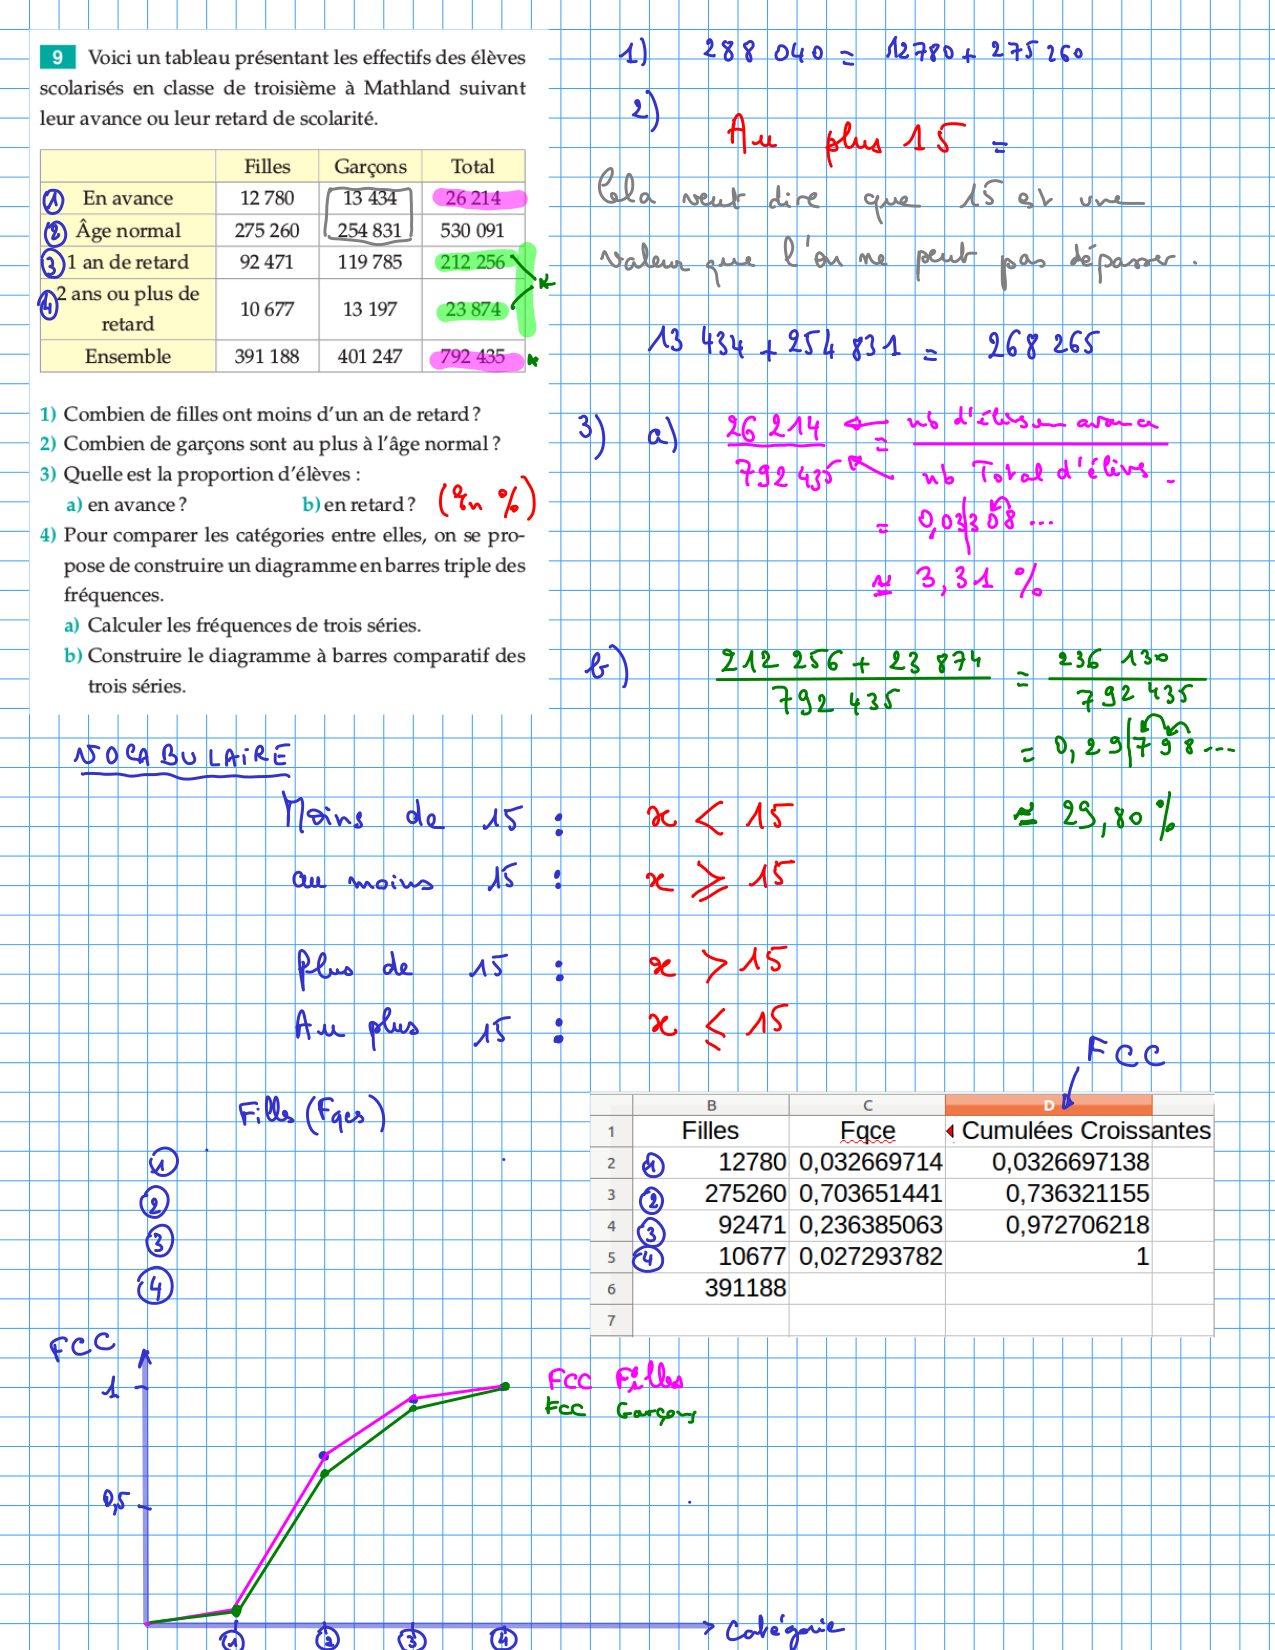 9 Voici un tableau présentant les effectifs des élèves
scolarisés en classe de troisième à Mathland suivant
leur avance ou leur retard de scolarité.
Filles Garçons Total
① En avance 12 780 13 434 26 214
② Âge normal 275 260 254 831 530 091
③ 1 an de retard 92 471 119 785 212 256
④ 2 ans ou plus de
retard 10 677 13 197 23 874
Ensemble 391 188 401 247 792 435
1) Combien de filles ont moins d'un an de retard ?
2) Combien de garçons sont au plus à l'âge normal ?
3) Quelle est la proportion d'élèves :
a) en avance ? b) en retard ? (En %)
4) Pour comparer les catégories entre elles, on se pro-
pose de construire un diagramme en barres triple des
fréquences.
a) Calculer les fréquences de trois séries.
b) Construire le diagramme à barres comparatif des
trois séries.
1) 288 040 = 12780 + 275 260
2)
Au plus 15 =
Cela veut dire que 15 est une
valeur que l'on ne peut pas dépasser.
13 434 + 254 831 = 268 265
3) a) 26 214 = nb d'élèves en avance
792 435 nb Total d'élèves.
= 0,03308...
≈ 3,31 %
b) 212 256 + 23 874 = 236 130
792 435 792 435
= 0,29798...
≈ 29,80 %
VOCABULAIRE
Moins de 15 : x < 15
au moins 15 : x ⩾ 15
Plus de 15 : x > 15
Au plus 15 : x ⩽ 15
FCC
Filles (Fqes)
①
②
③
④
B C D
1 Filles Fqce Cumulées Croissantes
2 ① 12780 0,032669714 0,0326697138
3 ② 275260 0,703651441 0,736321155
4 ③ 92471 0,236385063 0,972706218
5 ④ 10677 0,027293782 1
6 391188
7
FCC
1
0,5
FCC Filles
FCC Garçons
① ② ③ ④ Catégorie